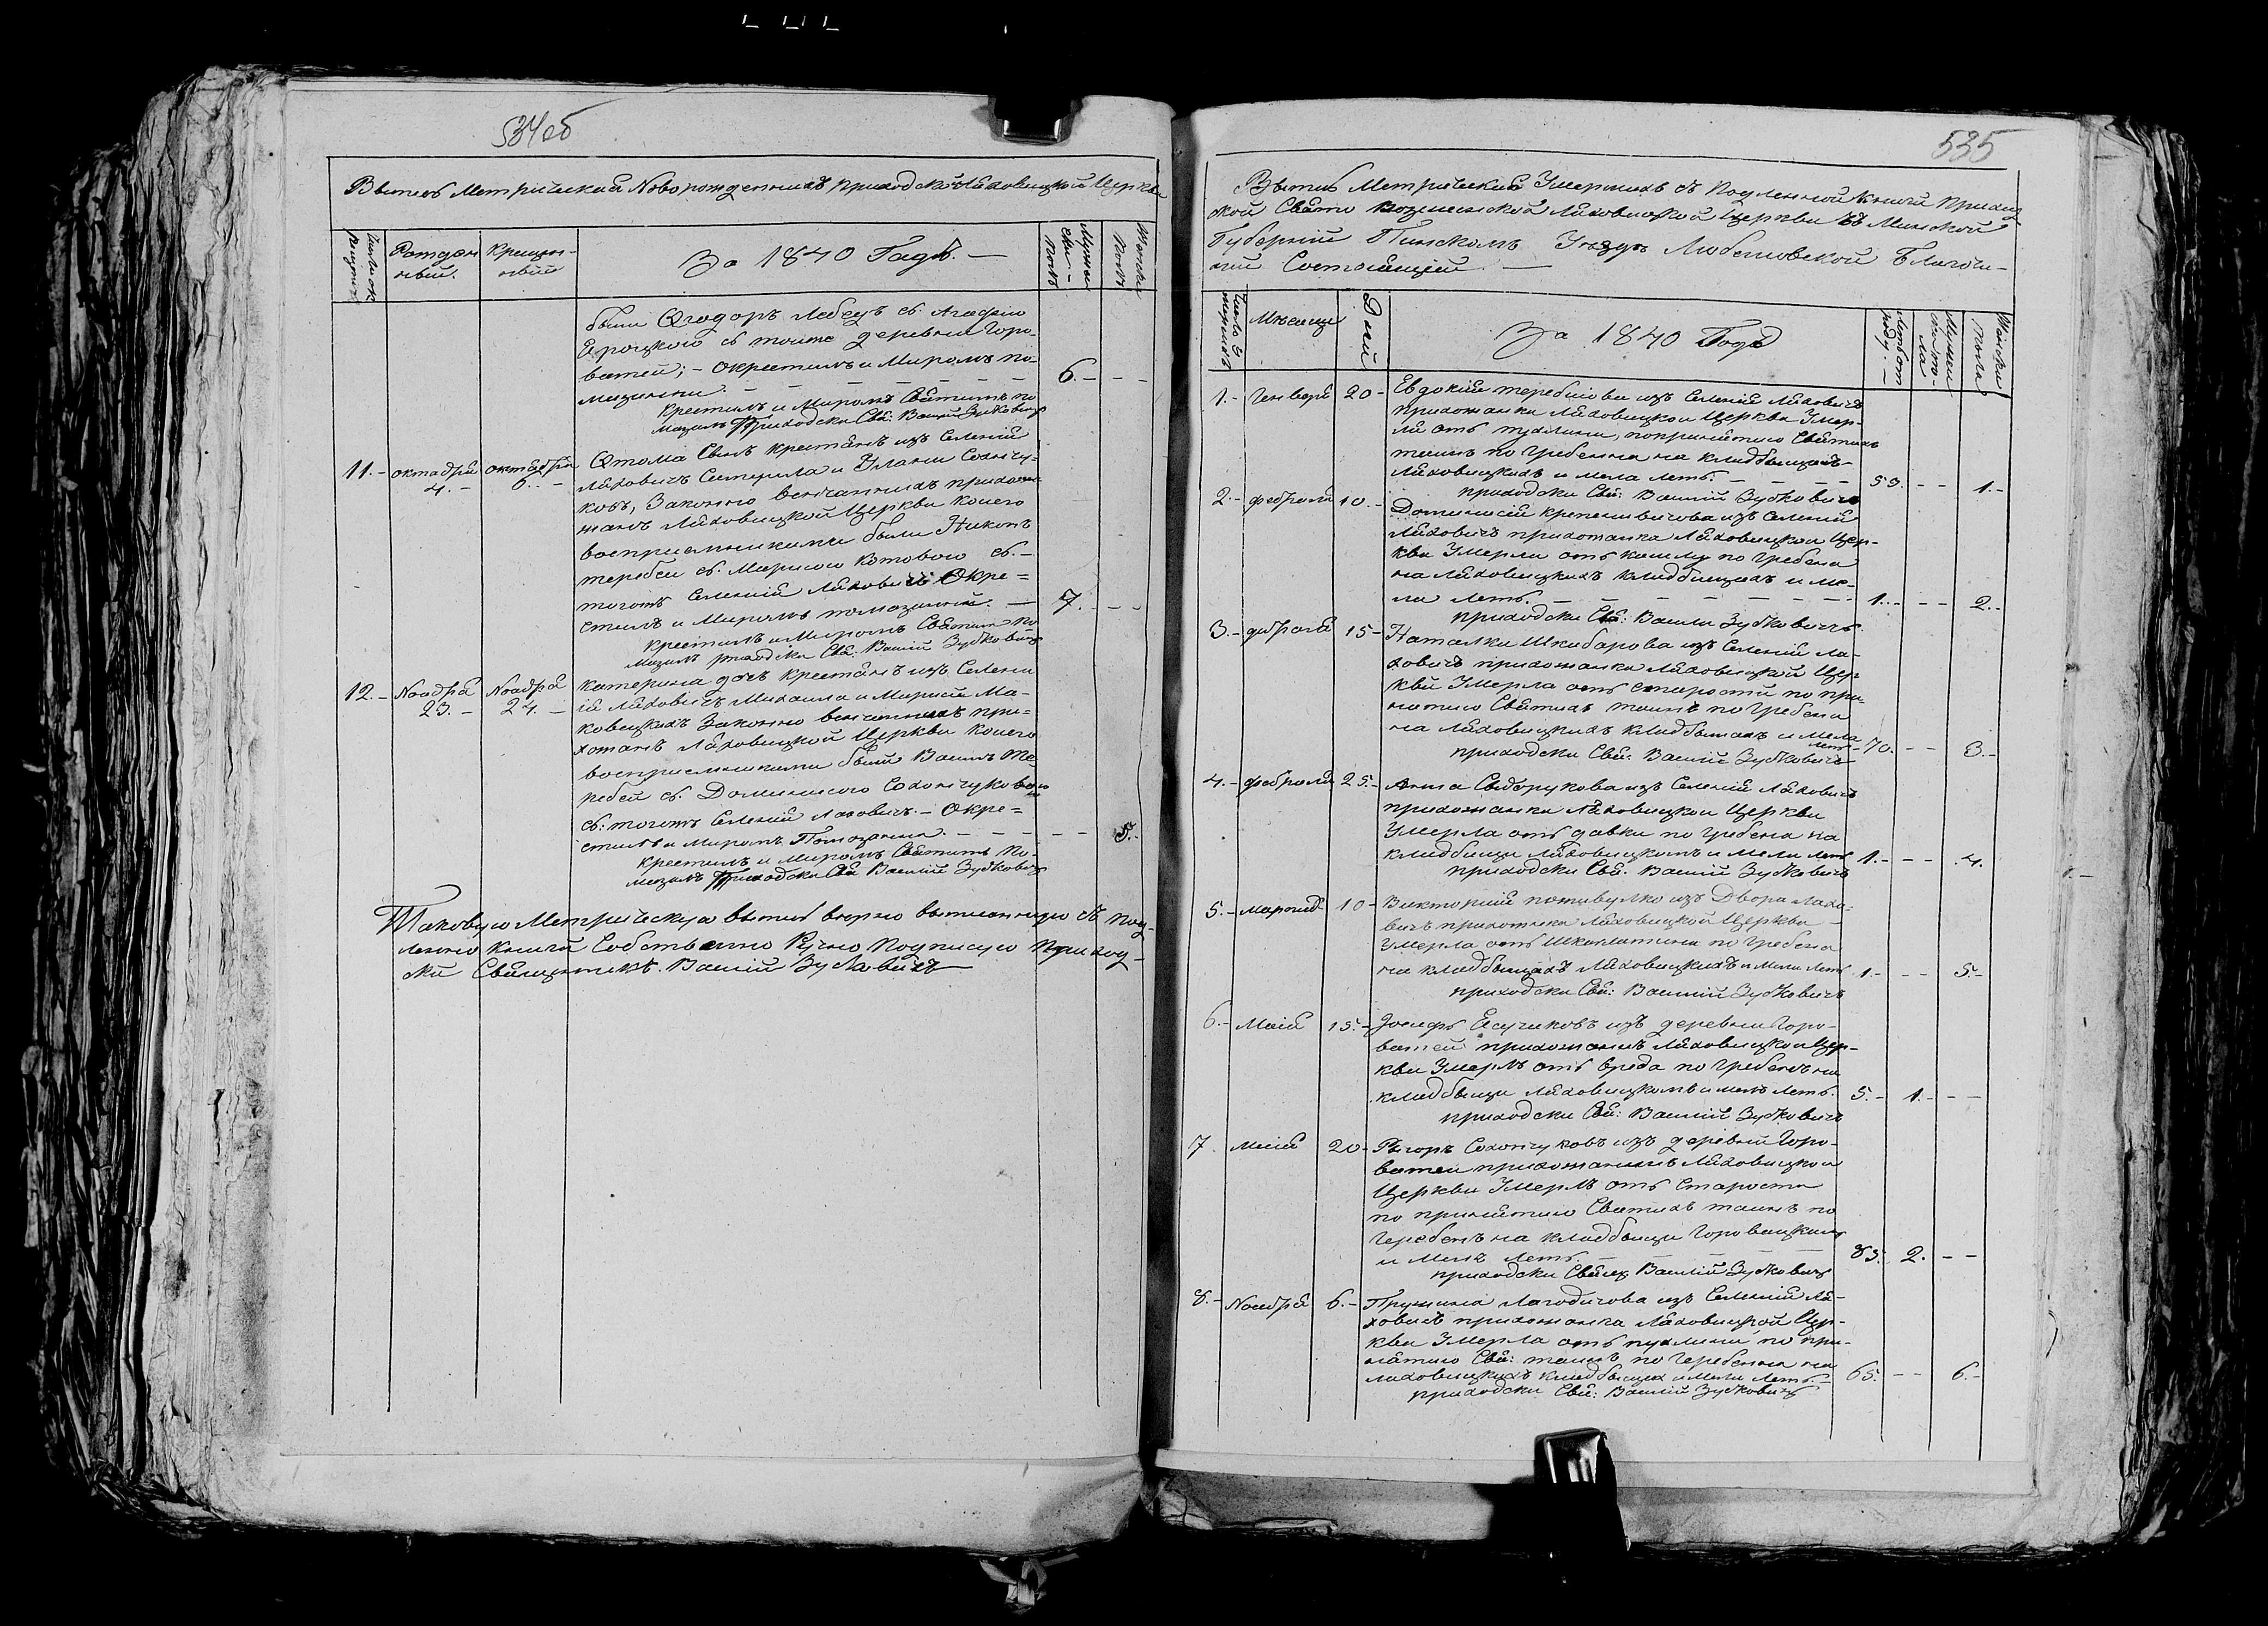 534об
Выпись Метрическая Новорожденныхъ приходской Ляховицкой Церкви
Рожденный. Крещенный За 1840 Годъ. Мужеска Полъ Женски Полъ
были Ѳеодоръ Лебедъ съ Агафіею
съ тоитъ деревни Горо-
ватеи; - окрестилъ и Миромъ по-
мазанни. 6. -
крестилъ и Миромъ Святымъ по
мазалъ Приходски Свя: Василій Зубковичъ
11. - октября 4. - октября 6. - Ѳтома Сынъ крестянъ изъ Селеній
Ляховичъ и Уляни Сохончу-
ковъ, Законно венчанныхъ прихо-
жанъ Ляховицкой Церкви коего
восприемниками были Никонъ
теребеи съ Мариею Котовою съ. -
тогожъ Селеній Ляховичъ Окре=
стилъ и Миромъ помазанній. - 7. -
крестилъ и Миромъ Святимъ по
мазалъ приходски Свя: Василій Зубковичъ
12. - Ноября 23. - Ноября 24. - катерина дочъ крестянъ изъ Селени
ій Ляховичъ Михаила и Марисіи Ма-
ковецкихъ Законно венчанныхъ при=
хожанъ Ляховицкой Церкви коего
восприемниками были Василъ Те
ребеи съ Доминисею Сохончуковою
съ: тогожъ Селеній Лаховичъ. - Окре=
стилъ и Миромъ Помазанна. - 5. -
крестилъ и Миромъ Святымъ По-
мазалъ Приходски Свя Василій Зубковичъ
Таковую Метрическую выпись верно выписанную съ под-
ленно книги Собственно Ручно Подписую Приход-
ски Священникъ. Василій Зубковичъ
535
Выпись Метрическая Умершихъ съ Подленной книги Приход
ской Свято Ляховицкой Церкви въ Минской
Губерніи Пинскомъ Уезде Любешовской Благочи-
ніи Состоящей. -
Число Умершихъ Месяци Дней За 1840 Годъ Летъ отъ роду. - Мужеска пола Женски Пола
1. - Генваря 20 - Евдокія теребіова изъ Селеній Ляховичъ
прихожанка Ляховицкои Церкви Умер-
ла отъ пухлини, попринятию Святихъ
таинъ погребенна на кладбищахъ
Ляховицкихъ и мела летъ. - 53. - 1. -
приходски Свя: Василій Зубковичъ
2. - февраля 10. - Доминисія изъ Селеній
Ляховичъ прихожанка Ляховицкои Цер-
кви Умерла отъ кашлу погребена
на Ляховицкихъ кладбищахъ и ме-
ла летъ. - 1. - 2. -
приходски Свя: Василій Зубковичъ
3. - февраля 15 - Наталка Шкабарова изъ Селеній Ля-
ховичъ прихожанка Ляховицкой Цер-
кви Умерла отъ старости по при-
нятию Святихъ таинъ погребена
на Ляховицкихъ кладбищахъ и Мела
летъ - 70. - 3. -
приходски Свя: Василій Зубковичъ
4. - февраля 25. - Анна Сидорукова изъ Селеній Ляховичъ
прихожанка Ляховицкои Церкви
Умерла отъ давки погребена на
кладбищи Ляховицкомъ и Мела летъ 1. - 4.
приходски Свя: Василій Зубковичъ
5. - марта 10 - Викторія изъ Двора Ляхо-
вичъ прихожанка Ляховицкой Церкви -
Умерла отъ Шкарлатини погребена
на кладбищахъ Ляховицкихъ и Мела летъ 1. - 5. -
приходски Свя: Василій Зубковичъ
6. - Маія 15. - Іосифъ изъ деревни Горо-
ватеи прихожанинъ Ляховицкои Цер-
кви Умеръ отъ вреда погребенъ на
кладбищи Ляховицкомъ и мелъ летъ. 5. - 1. -
приходски Свя: Василій Зубковичъ
7. Маія 20 - Рыгоръ Сохончуковъ изъ деревни Горо-
ватеи прихожанинъ Ляховицкои
Церкви Умеръ отъ Старости
по принятию Святихъ таинъ по
гребенъ на кладбищи Горовацкимъ
и Мелъ летъ. - 83. 2. -
приходски Свящ Василій Зубковичъ
8. - Ноября 6. - Пружина Лагодичова изъ Селеній Ля-
ховичъ прихожанка Ляховицкой Цер-
кви Умерла отъ пухлини, по при-
нятию Свя: таинъ погребенна на
ляховицкихъ кладбищах и Мела летъ. - 65. - 6. -
приходски Свя: Василій Зубковичъ